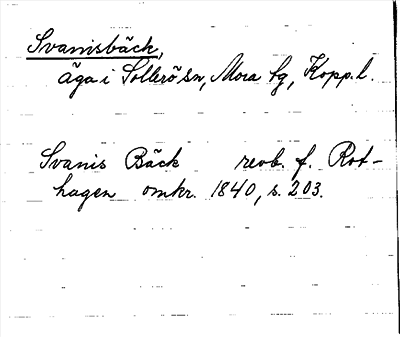 Svanisbäck,
äga i Sollerö sn, Mora tg, Kopp. l.
Svanis Bäck revb. f. Rot-
hagen omkr. 1840, s. 203.